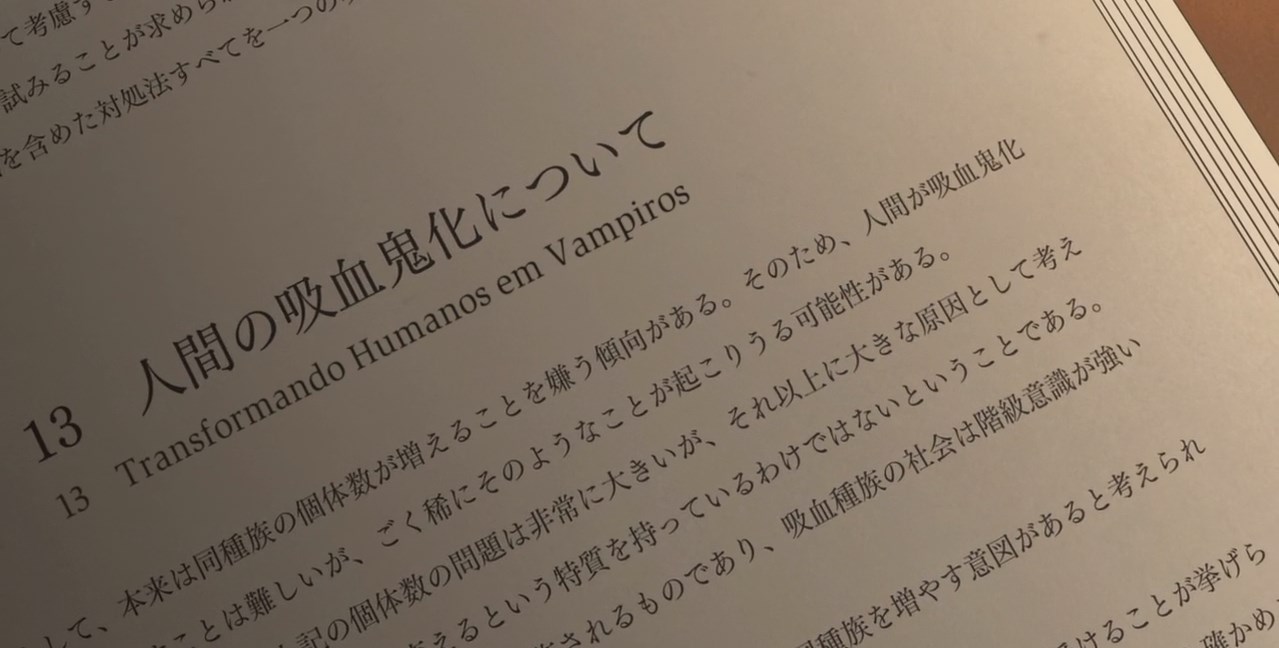 て考慮す
試みることが求めら
を含めた対処法すべてを一つの
13 人間の吸血鬼化について
13 Transformando Humanos em Vampiros
して、本来は同種族の個体数が増えることを嫌う傾向がある。そのため、人間が吸血鬼化
ことは難しいが、ごく稀にそのようなことが起こりうる可能性がある。
記の個体数の問題は非常に大きいが、それ以上に大きな原因として考え
えるという特質を持っているわけではないということである。
されるものであり、吸血種族の社会は階級意識が強い
種族を増やす意図があると考えられ
けることが挙げら
確かめ